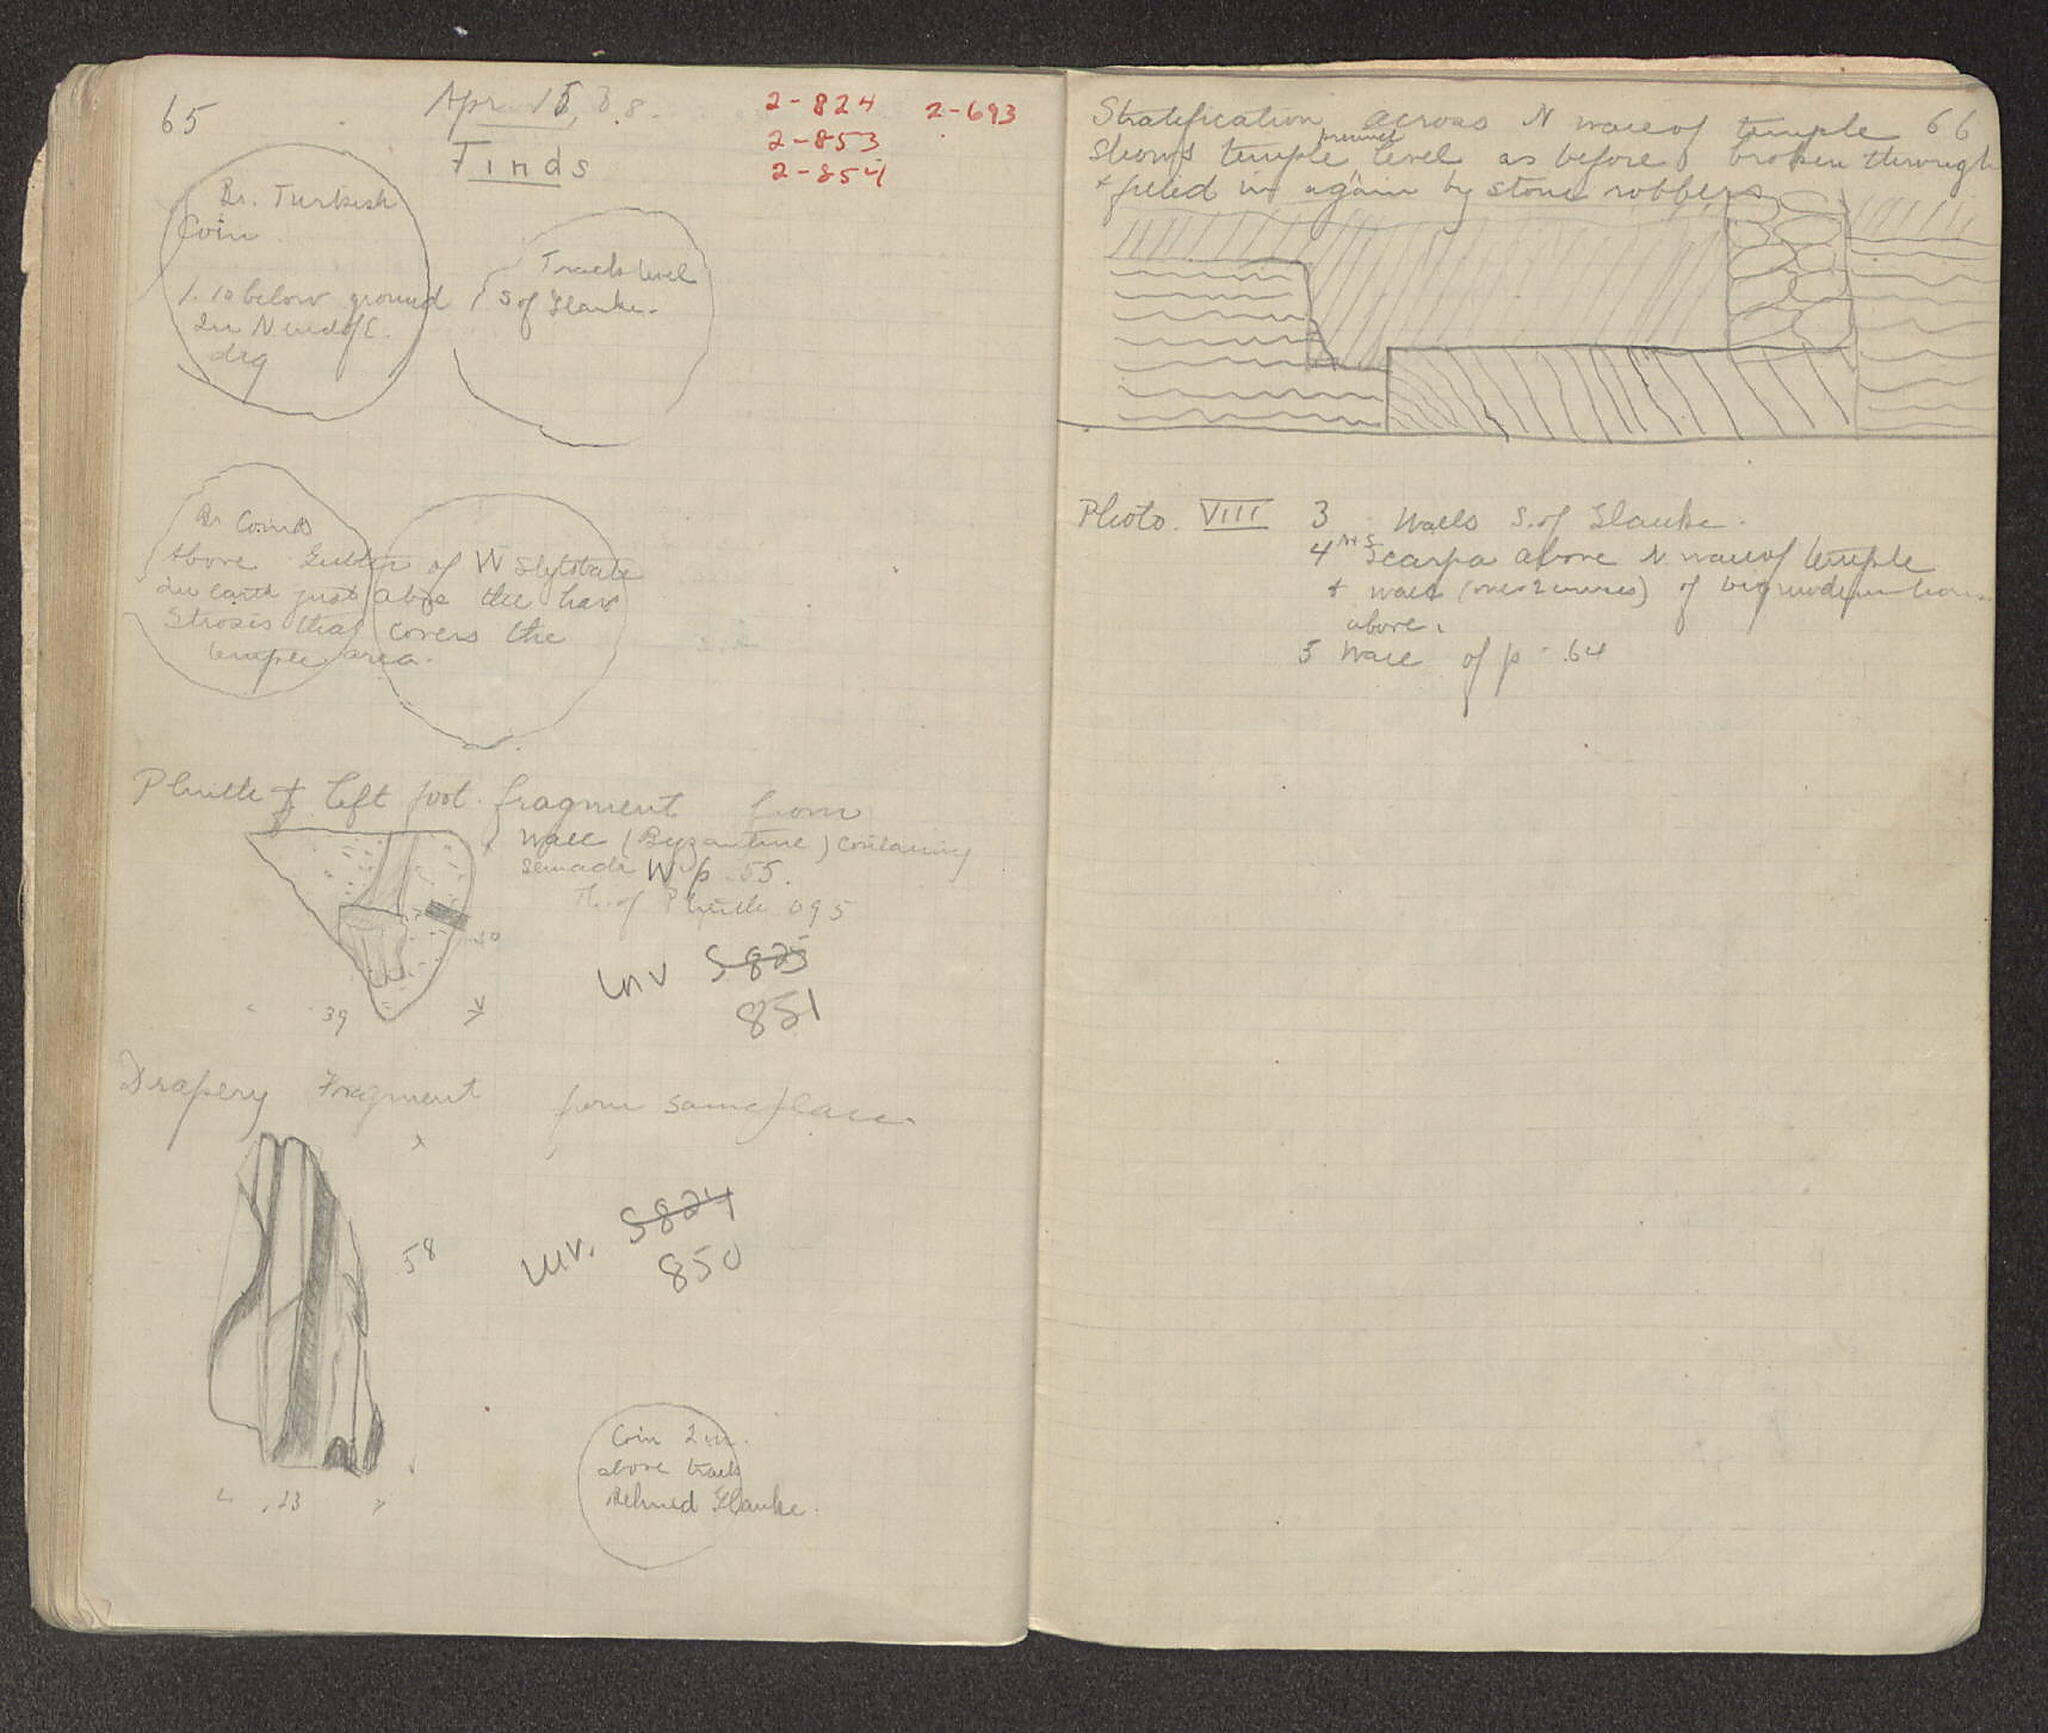 65
Apr 15, 38.
2-824 2-693
2-853
2-854
Finds
Br. Turkish
Coin
1.10 below ground
in N end of E.
dig
Track level
S of Glauke.
Br Coins
Above Gutter of W Stylobate
in earth just above the hard
Strosis that covers the
temple area.
Plinth & left foot fragment from
wall (Byzantine) containing
W p. 55.
Th. of Plinth 095
.30
.39
Inv S 825
851
Drapery Fragment from same place.
.58
Inv. S 824
850
.23
Coin 2 m.
above track
Behind Glauke.
Stratification across N wall of temple 66
Shows temple precinct level as before broken through
& filled in again by stone robbers
Photo. VIII 3 Walls S. of Glauke.
4 N+S Scarpa above N wall of temple
& wall (over 2 courses) of big modern house
above.
5 Wall of p. 64